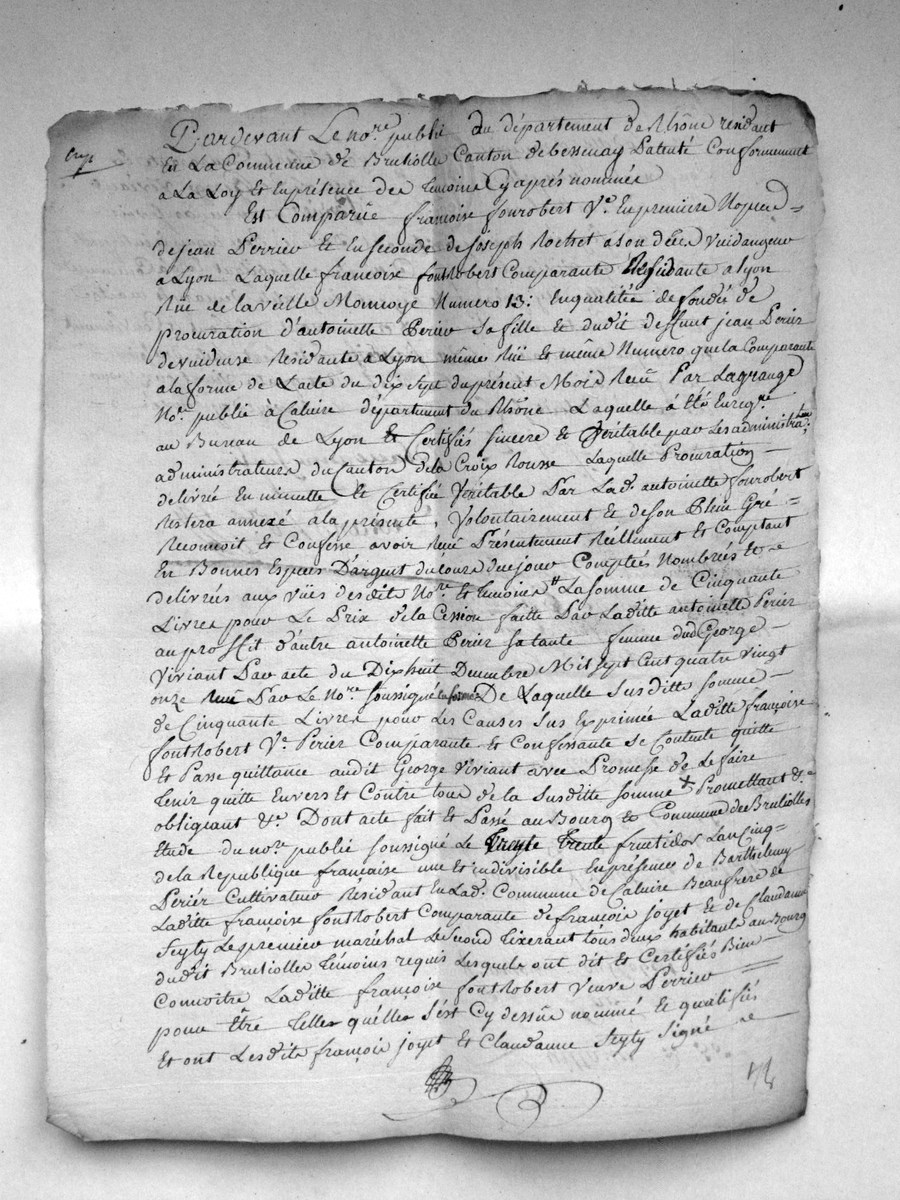 Pardevant Le no.re publié du département du Rhône rendant
En La Commune de Brulliolle Canton de bessenay Patenté Conformement
a La Loy Et En présence des temoins Cy après nommés
Est Comparûe françoise fonrobert V.e En première Noces
de jean Perrier Et En seconde de joseph Rochet a son décès Vuidangeur
a Lyon Laquelle francoise fontRobert Comparante Residante a Lyon
Rüe de la vieille Monnoye Numero 13: En qualitée de fondée de
procuration d'antoinette Perier sa fille Et dudit deffunt jean Perier
devuideuse Residante à Lyon même Rüe Et même Numero que la Comparante
a la forme de L'acte du dix sept du présent Mois Reçu Par Lagrange
No.re publié à Caluire département du Rhône Laquelle à Eté Enreg.ré
au Bureau de Lyon Et Certifiés sincere Et Véritable par Les administra
administrateurs du Canton de la Croix Rousse Laquelle Procuration
délivrée En minutte Et Certifié Véritable Par Lad. antoinette fonrobert
Restera annexé a la présente, Volontairement Et de son Plein Gré
Reconnoit Et Confesse avoir Reçu Présentement Réellement Et Comptant
En Bonnes Espèces D'argent du cours de ce jour Comptées Nombrées Et
délivrées aux vües desdits No.re Et temoins La somme de Cinquante
Livres pour Le Prix de la Cession faitte Par Laditte antoinette Périer
au proffit d'autre antoinette Périer sa tante femme dud George
Viviant Par acte du Dix huit Decembre Mil sept Cent quatre vingt
onze Reçu Par Le No.re soussigné De Laquelle susditte somme
de Cinquante Livres pour Les Causes sus Exprimée Laditte françoise
fontRobert V.e Périer Comparante Et Confessante se Contente quitte
Et Passe quittance audit George Viviant avec Promesse de Le faire
tenir quitte Envers Et Contre tous de la susditte somme Promettant &.
obligeant &.a Dont acte fait Et Passé au Bourg & Commune de Brulliolles
Etude du no.re publié soussigné Le trente fructidor L'an Cinq
de la République française une Et indivisible En présences de Barthélemy
Périer Cultivateur Residant En Lad. Commune de Caluire Beaufrere de
Laditte françoise fontRobert Comparante de françois joyet Et de Claudanne
Seyty Le premier maréchal Le second tixerant tous deux habitants au Bourg
dudit Brulliolles témoins requis Lesquels ont dit Et Certifiés Bien
Connoitre Laditte françoise fontRobert Veuve Perrier
pour Être telles qu'elles s'est Cy dessus nommé Et qualifiés
Et ont Lesdits françois joyet Et Claudanne Seyty signé